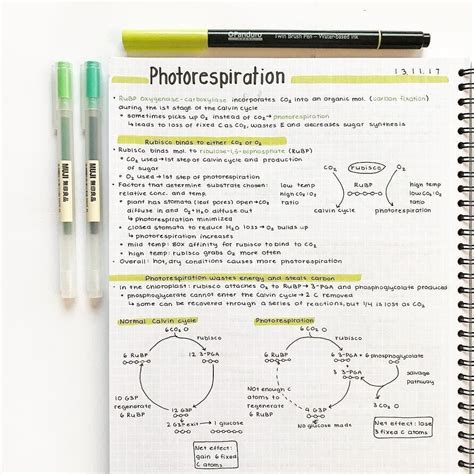 Pandora Twin Brush Pen - Water-based ink
MUJI 無印良品
MUJI 無印良品
13.11.17
Photorespiration
• RuBP oxygenase-carboxylase incorporates CO₂ into an organic mol. (carbon fixation)
during the 1st stage of the Calvin cycle
• sometimes picks up O₂ instead of CO₂ → photorespiration
↳ leads to loss of fixed C as CO₂, wastes E and decreases sugar synthesis
Rubisco binds to either CO₂ or O₂
• Rubisco binds mol. to ribulose-1,5-bisphosphate (RuBP)
• CO₂ used → 1st step of calvin cycle and production
of sugar
• O₂ used → 1st step of photorespiration
• Factors that determine substrate chosen:
relative conc. and temp.
• plant has stomata (leaf pores) open → CO₂
diffuse in and O₂ + H₂O diffuse out
↳ photorespiration minimized
• closed stomata to reduce H₂O loss → O₂ builds up
↳ photorespiration increases
• mild temp: 80x affinity for rubisco to bind to CO₂
• high temp: rubisco grabs O₂ more often
• Overall: hot, dry conditions causes more photorespiration
CO₂ rubisco O₂
RuBP
low temp
high CO₂
ratio
high temp
high O₂
ratio
calvin cycle photorespiration
Photorespiration wastes energy and steals carbon
• In the chloroplast: rubisco attaches O₂ to RuBP → 3-PGA and phosphoglycolate produced
• phosphoglycolate cannot enter the Calvin cycle → 2 C removed
↳ some can be recovered through a series of reactions, but 1/4 is lost as CO₂
Normal Calvin cycle
6 CO₂
rubisco
6 RuBP
12 3-PGA
10 G3P
regenerate
6 RuBP
12 G3P
2 G3P exit → 1 glucose
Net effect:
gain 6 fixed
C atoms
Photorespiration
6 O₂
rubisco
6 RuBP
6 3-PGA + 6 phosphoglycolate
+
3 3-PGA
salvage
pathway
3 CO₂
Not enough
C atoms
to regenerate
6 RuBP
9 G3P
No glucose made
Net effect: lose
3 fixed C atoms